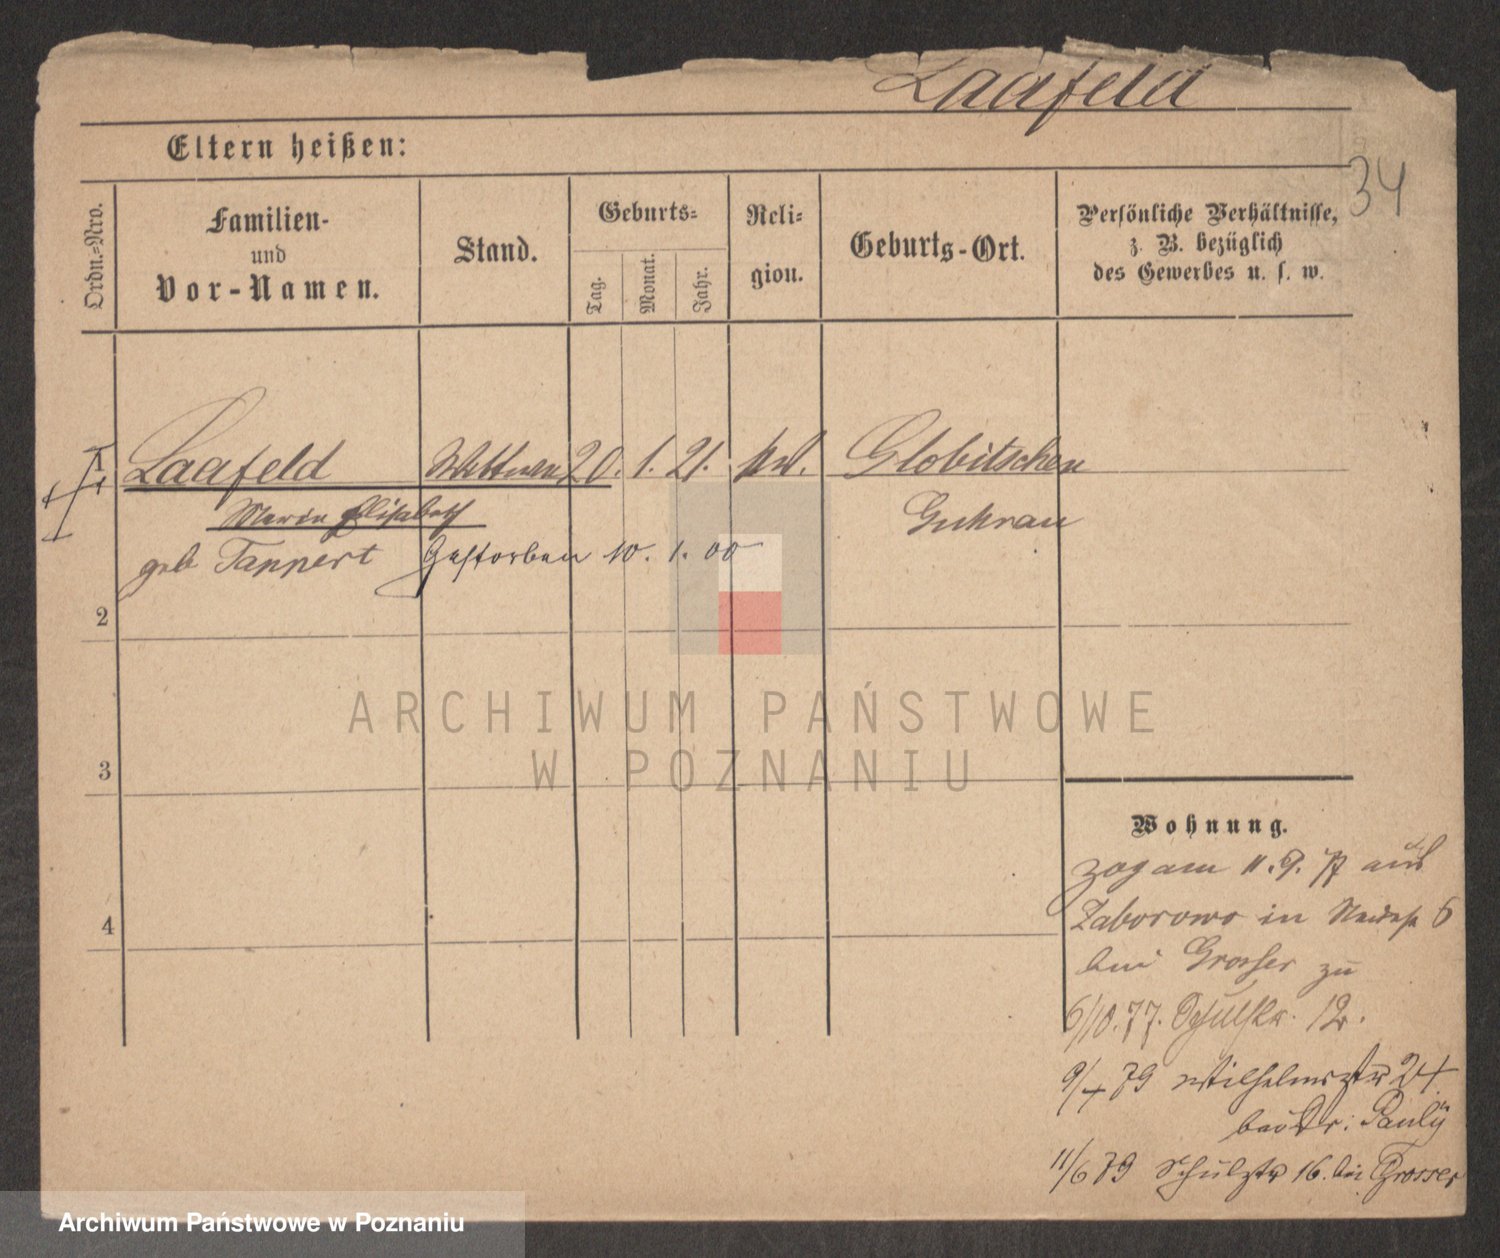 Laafeld
34
Eltern heißen:
Ordn.=Nro.
Familien-
und
Vor-Namen.
Stand.
Geburts=
Tag.
Monat.
Jahr.
Reli=
gion.
Geburts-Ort.
Persönliche Verhältnisse,
z. B. bezüglich
des Gewerbes u. s. w.
1 Laafeld Wittwe 20. 1. 21. ev. Globitschen
Marie Elisabeth Guhrau
geb Tappert Gestorben 10. 1. 00
2
3
4
Wohnung.
zog am 11.9.77 aus
Zaborowo in 6
bei Grosser zu
6/10.77. Schulstr. 12.
9/4 79 Wilhelmstr 24
bei Dr: Pauly
11/6 79 Schulstr 16. bei Grosser
ARCHIWUM PAŃSTWOWE
W POZNANIU
Archiwum Państwowe w Poznaniu